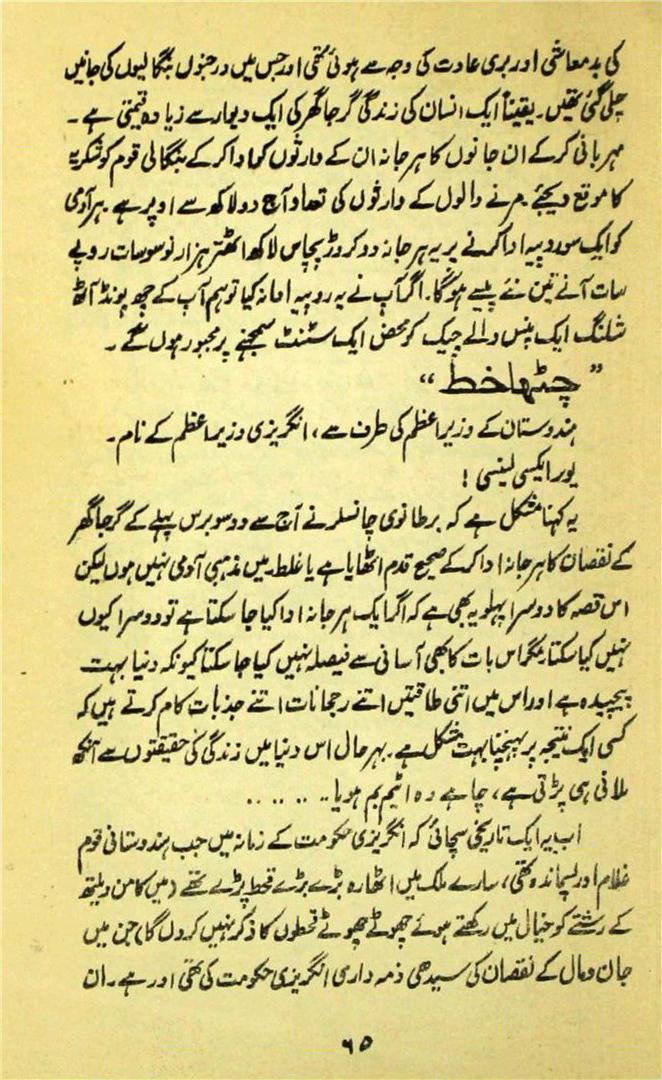 کی بدمعاشی اور بری عادت کی وجہ سے ہوئی تھی اور جس میں درجنوں بنگالیوں کی جانیں
چلی گئی تھیں۔ یقیناً ایک انسان کی زندگی گرجا گھر کی ایک دیوار سے زیادہ قیمتی ہے۔
مہربانی کرکے ان جانوں کا ہرجانہ ان کے وارثوں کو ادا کرکے بنگالی قوم کو شکریہ
کا موقع دیجئے۔ مرنے والوں کے وارثوں کی تعداد آج دو لاکھ سے اوپر ہے۔ ہر آدمی
کو ایک سو روپیہ ادا کرنے پر یہ ہرجانہ دو کروڑ پچاس لاکھ اٹھتر ہزار نو سو سات روپے
سات آنے تین نئے پیسے ہوگا۔ اگر آپ نے یہ روپیہ ادا نہ کیا تو ہم آپ کے چھ پونڈ آٹھ
شلنگ ایک پنس والے چیک کو محض ایک سٹنٹ سمجھنے پر مجبور ہوں گے۔
”چھٹا خط“
ہندوستان کے وزیراعظم کی طرف سے، انگریزی وزیراعظم کے نام۔
یور ایکسی لینسی!
یہ کہنا مشکل ہے کہ برطانوی چانسلر نے آج سے دو سو برس پہلے کے گرجا گھر
کے نقصان کا ہرجانہ ادا کرکے صحیح قدم اٹھایا ہے یا غلط۔ میں مذہبی آدمی نہیں ہوں لیکن
اس قصہ کا دوسرا پہلو یہ بھی ہے کہ اگر ایک ہرجانہ ادا کیا جا سکتا ہے تو دوسرا کیوں
نہیں کیا سکتا مگر اس بات کا بھی آسانی سے فیصلہ نہیں کیا جا سکتا کیونکہ دنیا بہت
پیچیدہ ہے اور اس میں اتنی طاقتیں اتنے رجحانات اتنے جذبات کام کرتے ہیں کہ
کسی ایک نتیجہ پر پہنچنا بہت مشکل ہے۔ بہرحال اس دنیا میں زندگی کی حقیقتوں سے آنکھ
ملانی ہی پڑتی ہے، چاہے وہ ایٹم بم ہو یا۔۔ ۔۔ ۔۔ ۔۔
اب یہ ایک تاریخی سچائی کہ انگریزی حکومت کے زمانہ میں جب ہندوستانی قوم
غلام اور پسماندہ تھی، سارے ملک میں اٹھارہ بڑے بڑے قحط پڑے تھے (میں کامن ویلتھ
کے رشتے کو خیال میں رکھتے ہوئے چھوٹے چھوٹے قحطوں کا ذکر نہیں کروں گا) جن میں
جان و مال کے نقصان کی سیدھی ذمہ داری انگریزی حکومت کی تھی اور ہے۔ ان
۶۵